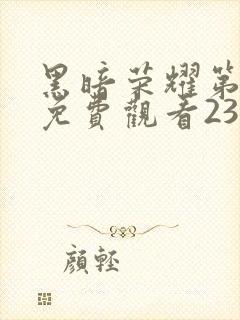 黑暗荣耀第
免費觀看23
顏輕